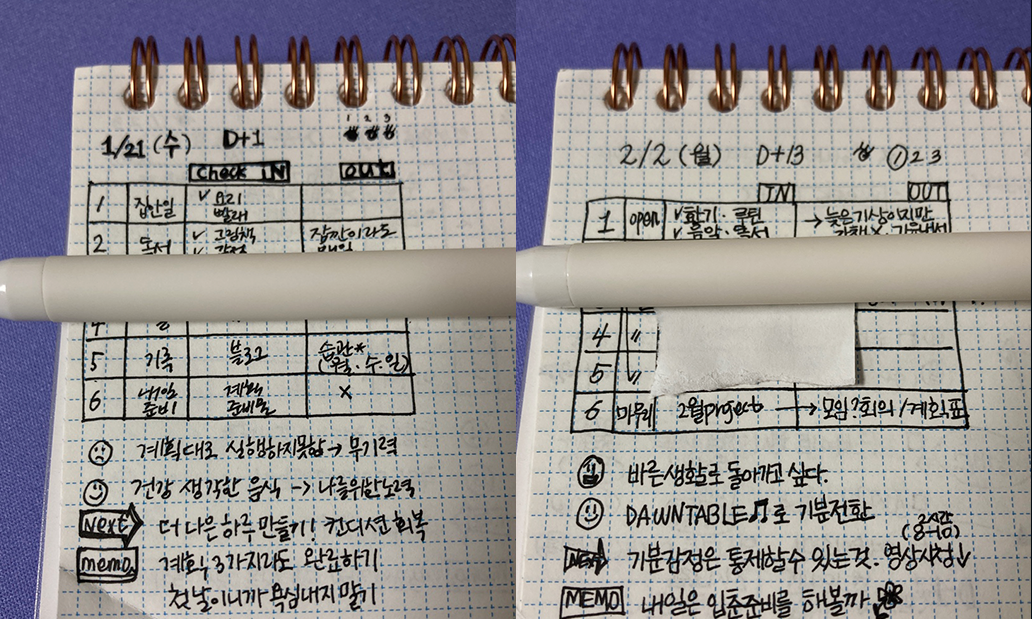 1/21 (수) D+1 1 2 3
Check IN OUT
1 집안일 ✓ 요리
빨래
2 독서 ✓ 그림책 잠깐이라도
매일
5 기록 블로그 습관*
(월, 수, 일)
6 내일 계획 ×
준비 준비물
계획대로 실행하지못함 → 무기력
건강 생각한 음식 → 나를위한노력
NEXT 더 나은 하루 만들기! 컨디션 회복
memo 계획, 3가지라도 완료하기
첫날이니까 욕심내지 말기
2/2 (월) D+13 ① 2 3
IN OUT
1 open ✓ 환기 · 루틴 → 늦은기상이지만
✓ 음악 · 독서
4 〃
5 〃
6 마무리 2월 project → 모임?회의 / 계획표
바른생활로 돌아가고 싶다.
DAWNTABLE♫로 기분전환
(2시간
(8-10)
NEXT 기분감정은 통제할수 있는것. 영상시청↓
MEMO 내일은 입춘준비를 해볼까